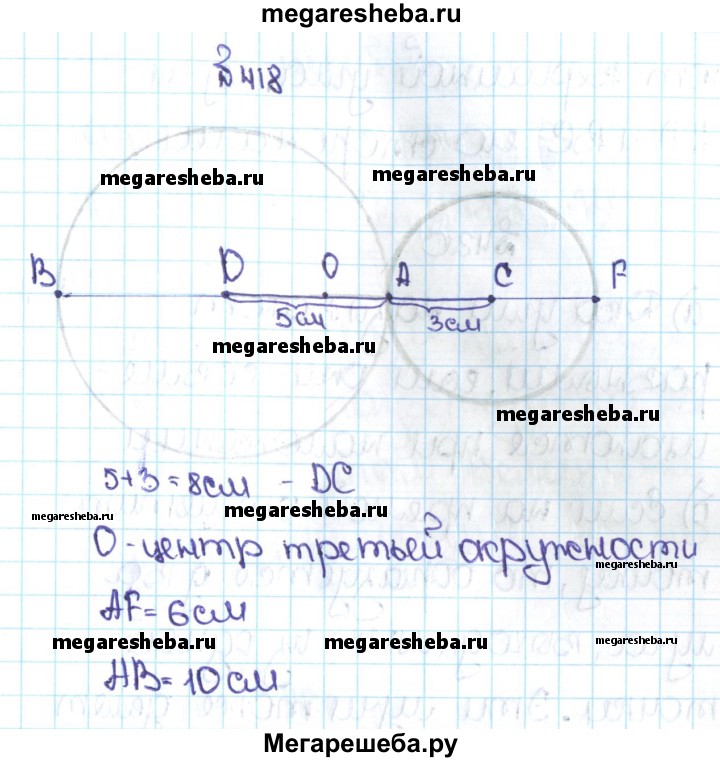 megaresheba.ru
№418
megaresheba.ru
megaresheba.ru
B D O A C F
5см
3см
megaresheba.ru
megaresheba.ru
5+3=8см - DC
megaresheba.ru
megaresheba.ru
О-центр третьей окружности
megaresheba.ru
AF=6см
megaresheba.ru
megaresheba.ru
megaresheba.ru
AB=10см
Мегарешеба.ру